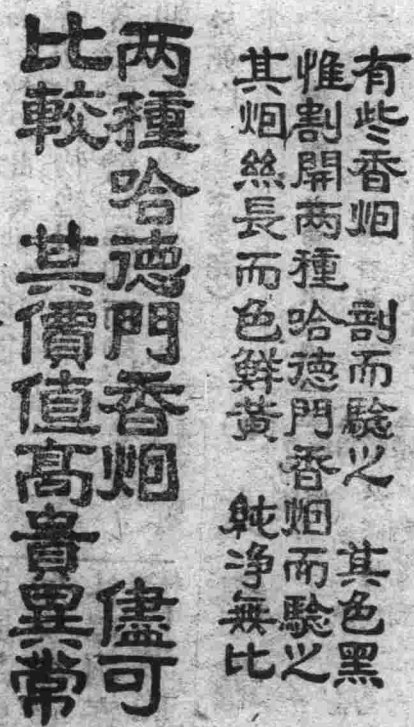 有些香烟 剖而驗之 其色黑
惟割開两種哈德門香烟而驗之
其烟絲長而色鮮黃 純净無比
两種哈德門香烟 儘可
比較 其價值高貴異常